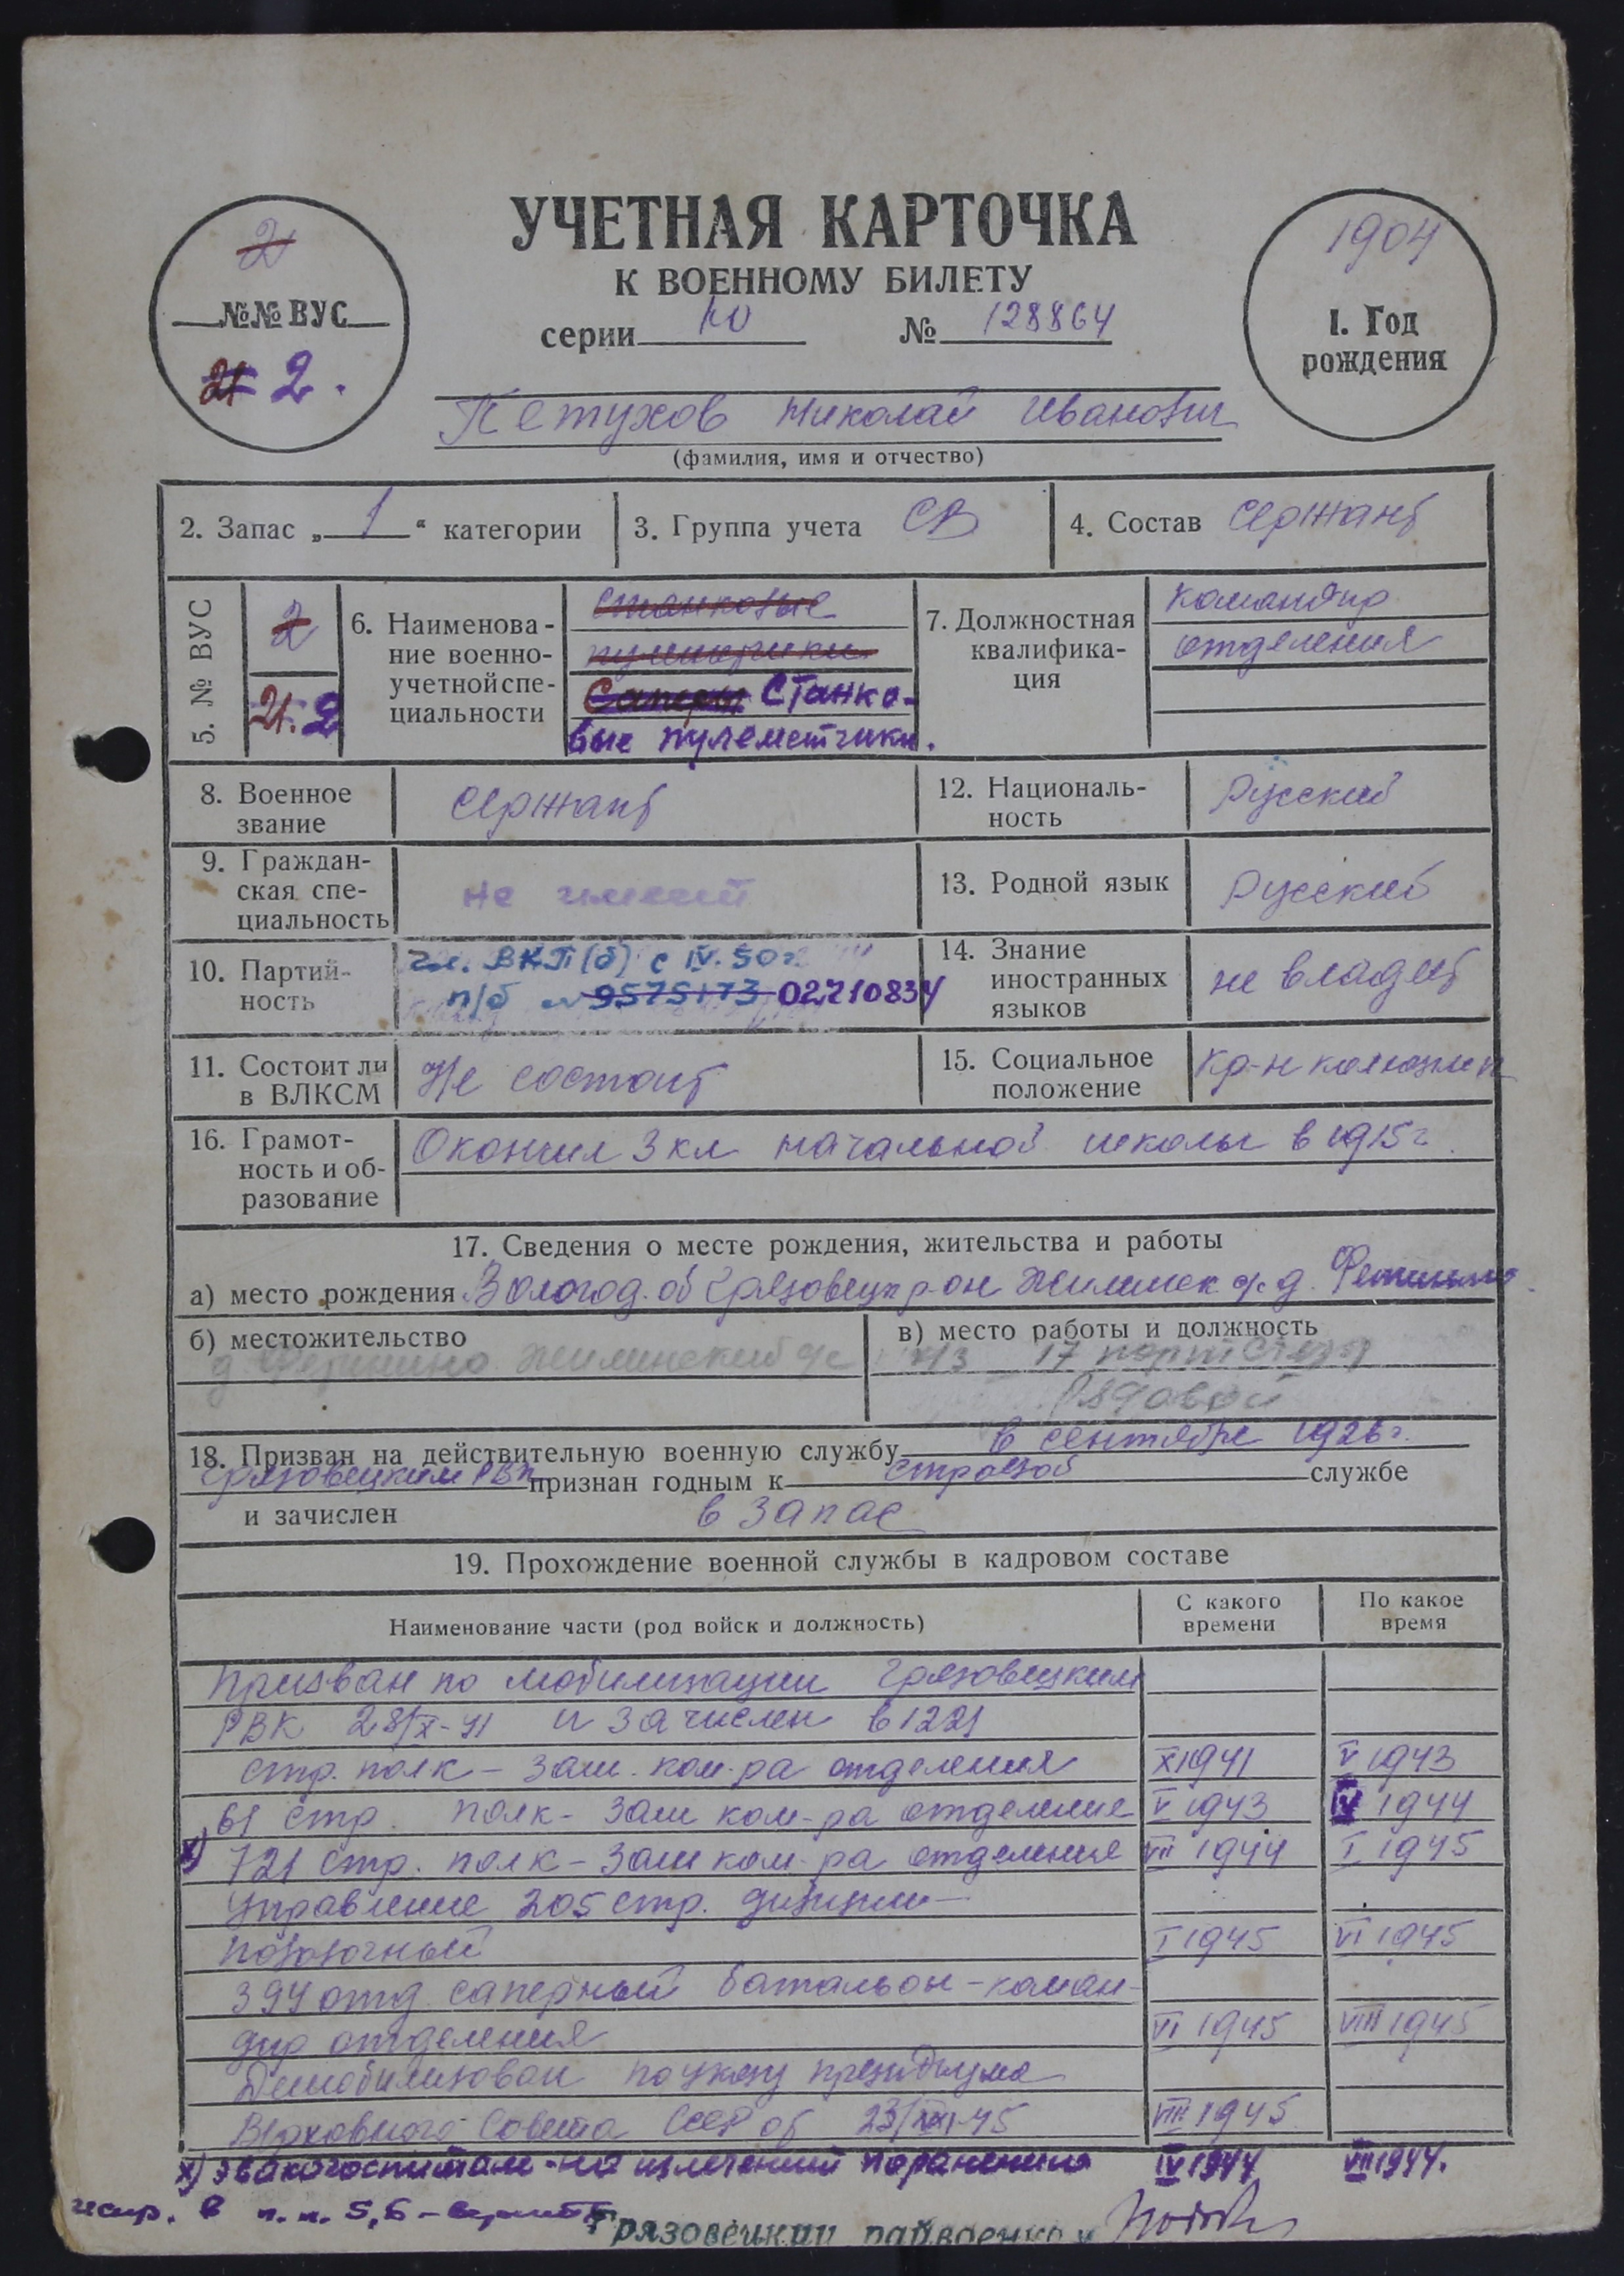 УЧЕТНАЯ КАРТОЧКА
К ВОЕННОМУ БИЛЕТУ
серии Ю № 128864
2
№№ ВУС
21 2.
1904
1. Год
рождения
Петухов Николай Иванович
(фамилия, имя и отчество)
2. Запас „ 1 “ категории
3. Группа учета СВ
4. Состав сержант
5. № ВУС
2
21. 2
6. Наименова-
ние военно-
учетной спе-
циальности
станковые
пулеметчики
Саперы Станко-
вые пулеметчики.
7. Должностная
квалифика-
ция
командир
отделения
8. Военное
звание
сержант
9. Граждан-
ская спе-
циальность
не имеет
10. Партий-
ность
чл. ВКП(б) с IV. 50 г.
п/б № 9575173 02710834
11. Состоит ли
в ВЛКСМ
Не состоит
12. Националь-
ность
Русский
13. Родной язык
Русский
14. Знание
иностранных
языков
не владеет
15. Социальное
положение
кр-н колхозник
16. Грамот-
ность и об-
разование
Окончил 3 кл начальной школы в 1915 г.
17. Сведения о месте рождения, жительства и работы
а) место рождения Вологод. об Грязовецк р-он Жилинск с/с д. Фетинино
б) местожительство
д. Фетинино Жилинский с/с
в) место работы и должность
17
Рядовой
18. Призван на действительную военную службу в сентябре 1926 г.
Грязовецким РВК признан годным к строевой службе
и зачислен в запас
19. Прохождение военной службы в кадровом составе
Наименование части (род войск и должность)
С какого
времени
По какое
время
Призван по мобилизации Грязовецким
РВК 28/X-41 и зачислен в 1221
стр. полк - зам. ком-ра отделения X 1941 V 1943
61 стр. полк - зам ком-ра отделение V 1943 IV 1944
х) 721 стр. полк - зам ком-ра отделения VII 1944 I 1945
Управление 205 стр. дивизии -
повозочный I 1945 VI 1945
394 отд. саперный батальон - коман-
дир отделения VI 1945 VIII 1945
Демобилизован по указу президиума
Верховного Совета СССР от 23/ -45 VIII 1945
х) эвакогоспитале - на излечении по ранению IV 1944 VII 1944.
испр. в п. п. 5, 6 -
Грязовецкий райвоенком